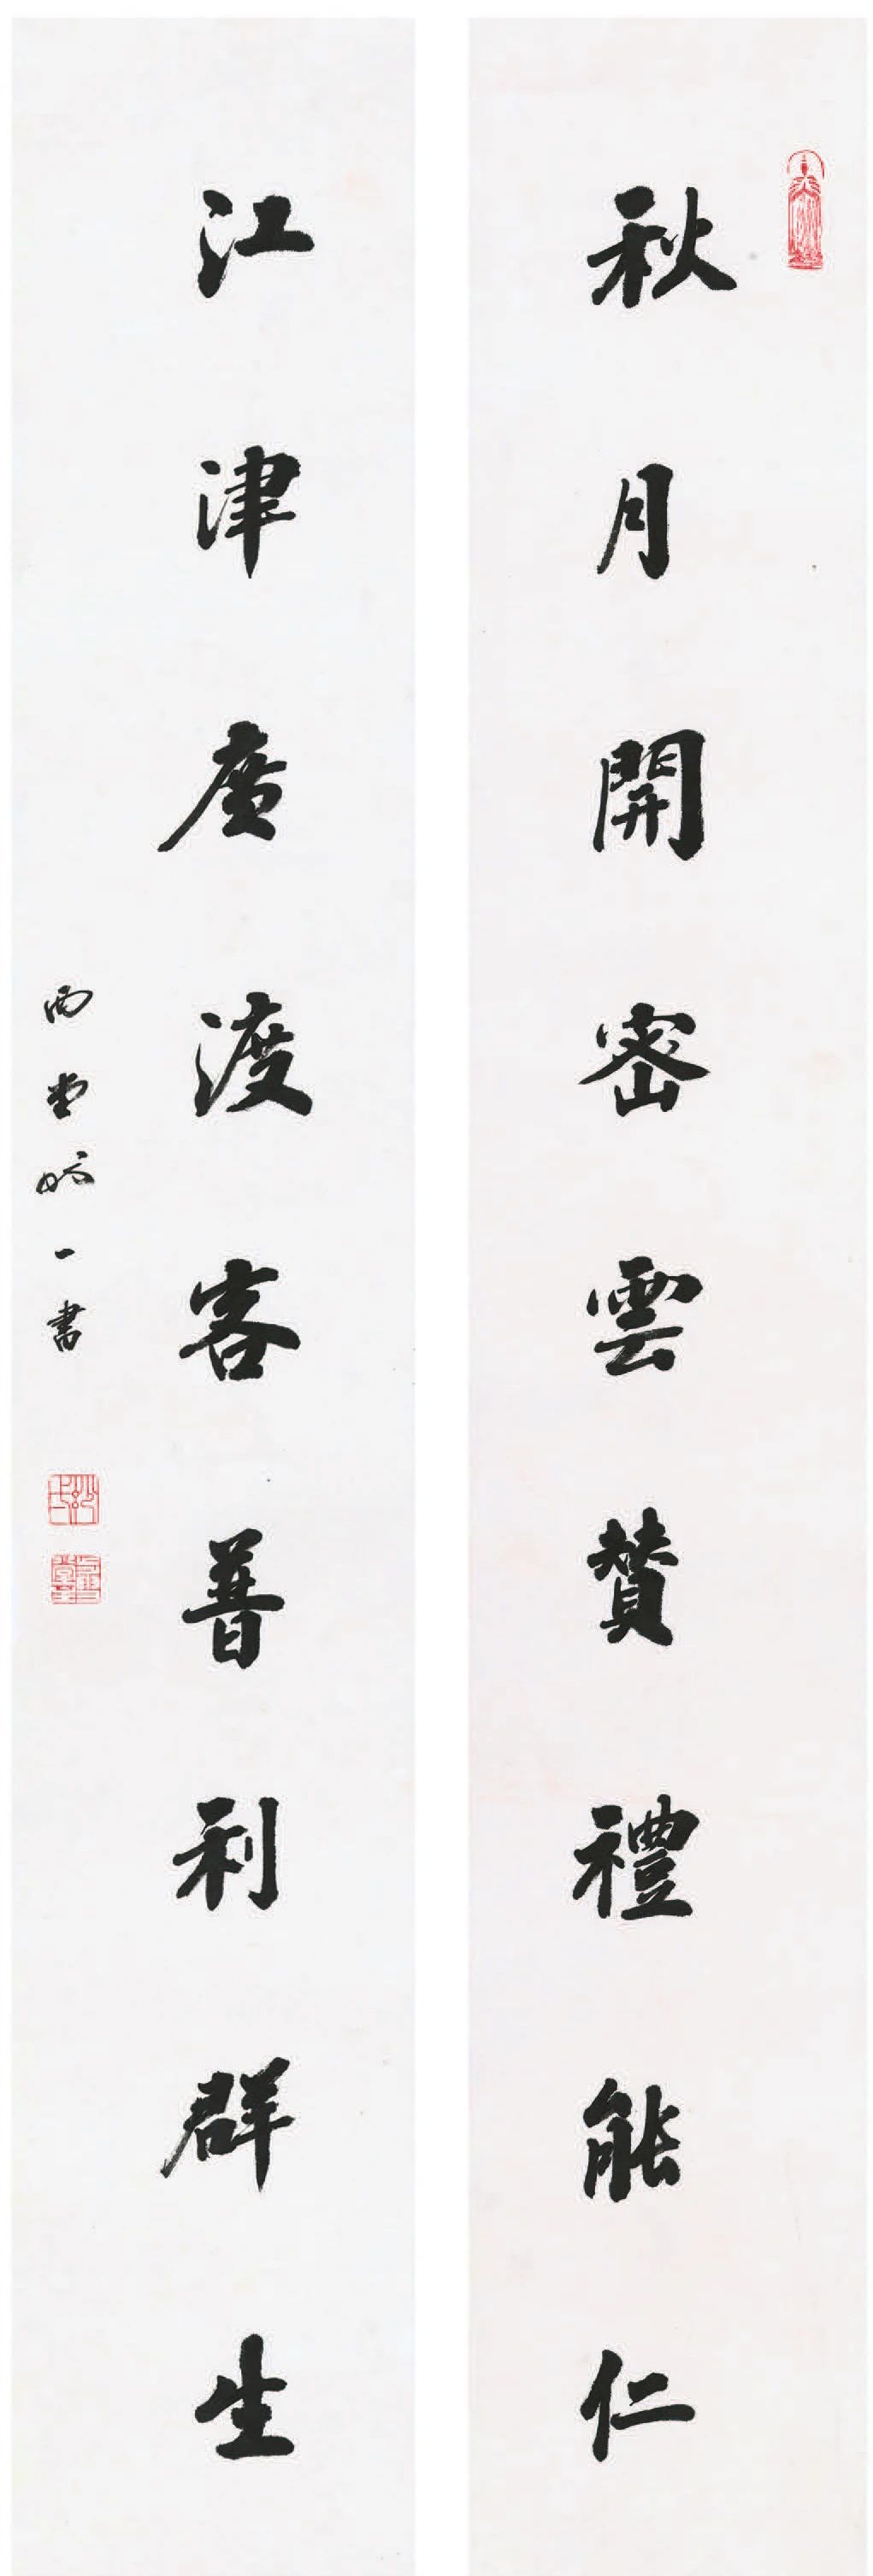 秋月開密雲贊禮能仁
江津廣渡客普利群生
雨堂妙一書